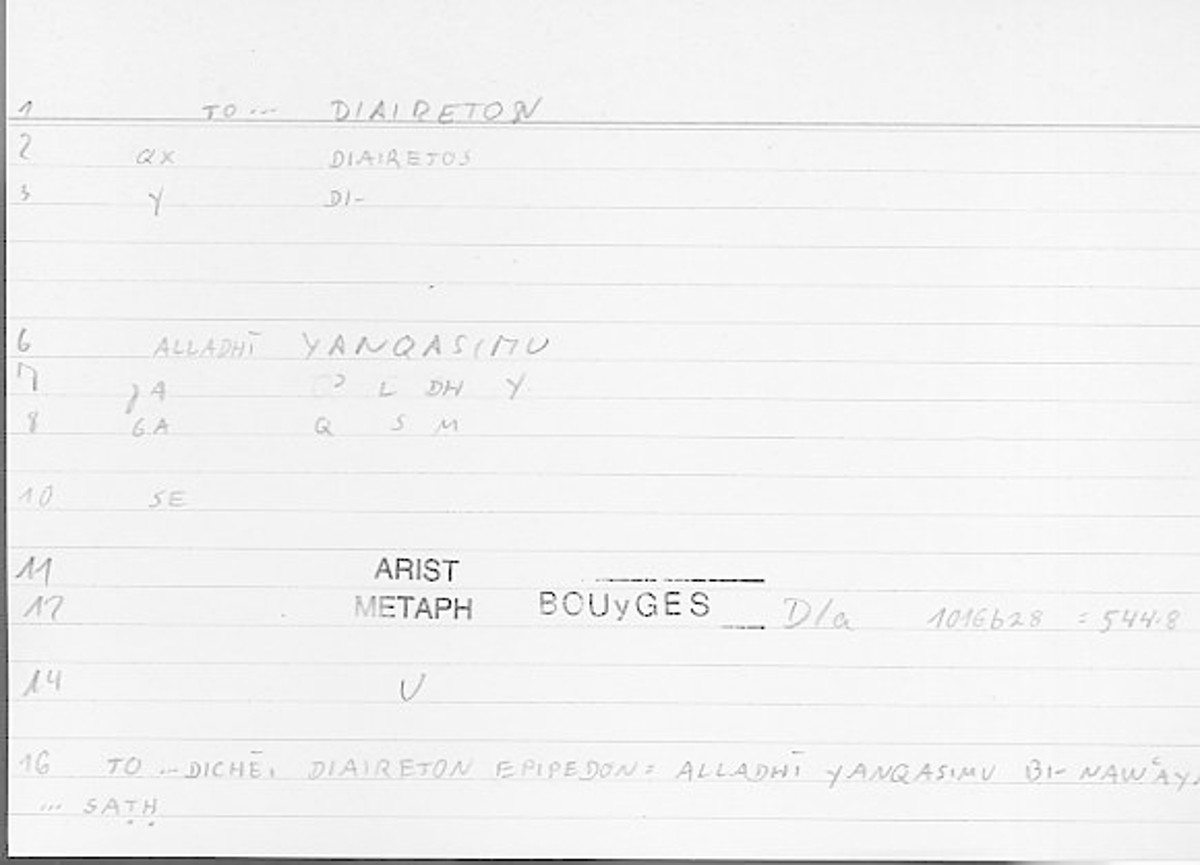 1 TO ... DIAIRETON
2 QX DIAIRETOS
3 Y DI-
6 ALLADHĪ YANQASIMU
7 A ʾ L DH Y
8 6A Q S M
10 SE
11 ARIST
12 METAPH BOUyGES D/a 1016b28 = 544.8
14 U
16 TO ... DICHĒI DIAIRETON EPIPEDON: ALLADHĪ YANQASIMU BI-NAWʿAY
... SAṬḤ